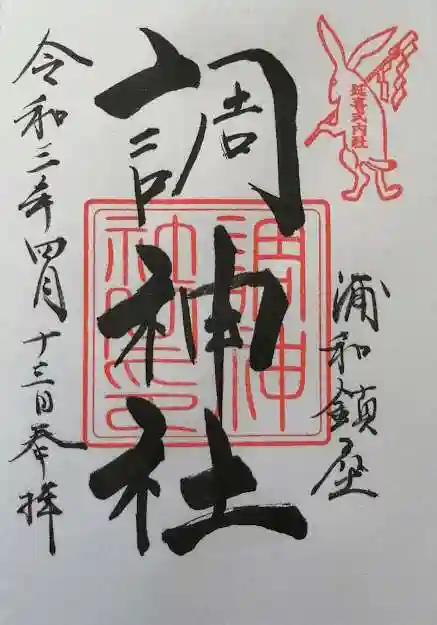 延喜式内社
浦和鎮座
調神社
調神
社之印
令和三年四月十三日奉拝